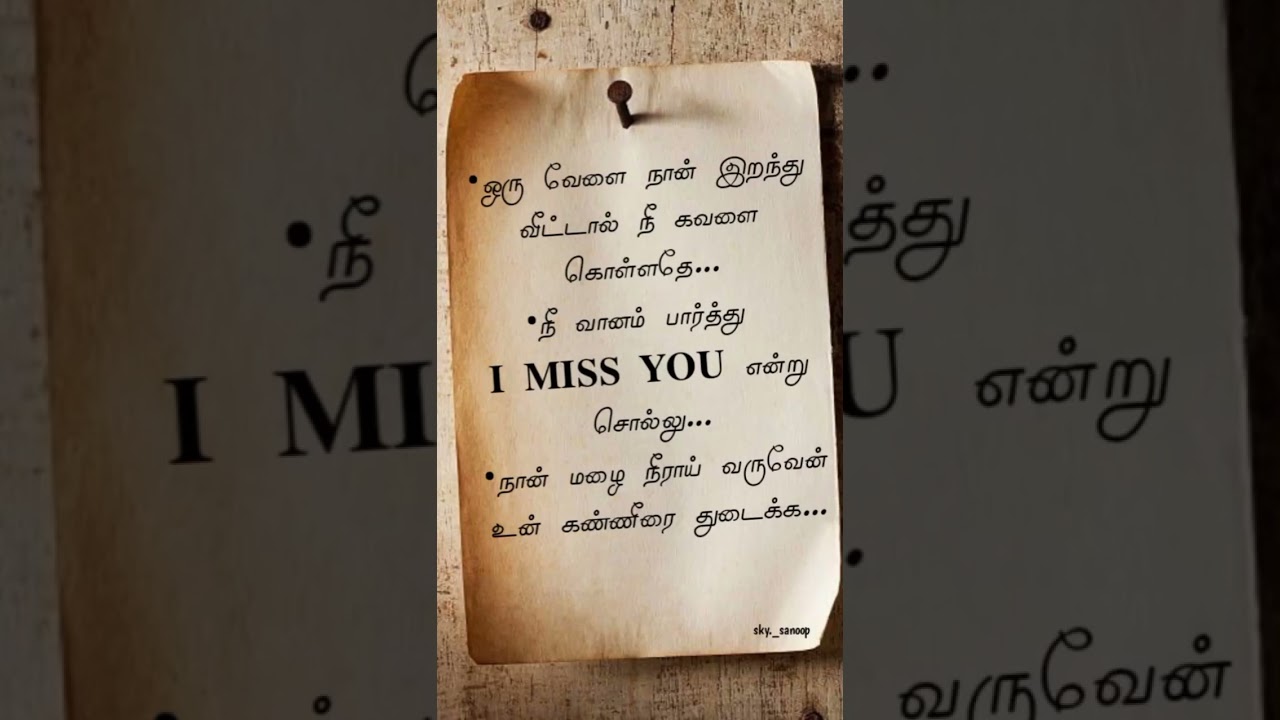 •ஒரு வேளை நான் இறந்து
வீட்டால் நீ கவளை
கொள்ளதே...
•நீ வானம் பார்த்து
I MISS YOU என்று
சொல்லு...
•நான் மழை நீராய் வருவேன்
உன் கண்ணீரை துடைக்க...
sky._sanoop